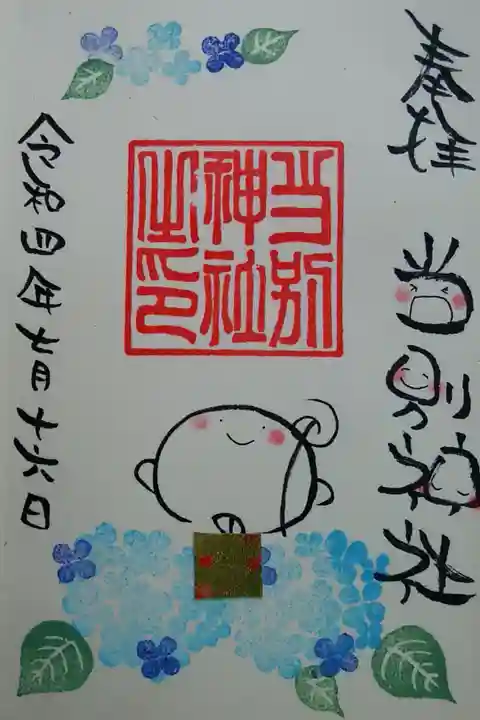 奉拝
当別神社
当別
神社
之印
令和四年七月十六日